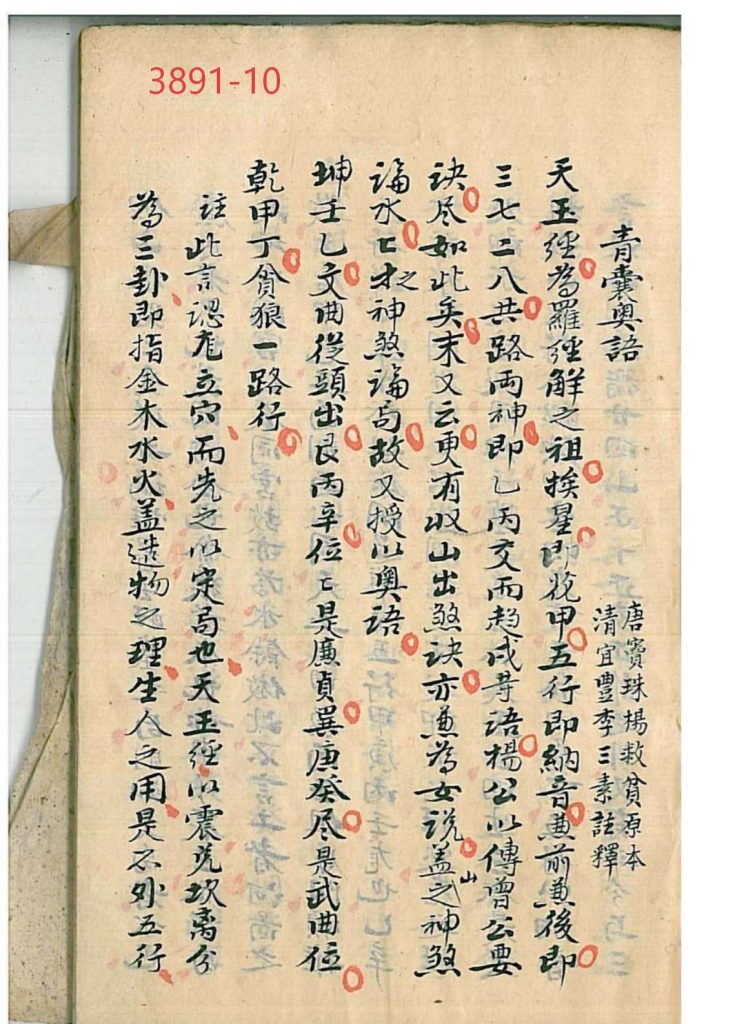 3891-10
青囊奥語
唐竇珠楊救貧原本
清宜豐李三素註釋
天玉經為羅經解之祖挨星即挖甲五行即納音兼前兼後即
三七二八共路両神即乙丙交而趋戍等語楊公以傳曾公要
訣尽如此矣末又云更有収山出煞訣亦兼為女説盖山之神煞
論水匕才之神煞論局故又授以奥語
坤壬乙文曲從頭出艮丙辛位匕是廉貞巽庚癸尽是武曲位
乾甲丁貪狼一路行
註此言認龙立穴而先之以定局也天玉經以震兑坎离分
為三卦即指金木水火盖造物之理生人之用是不外五行